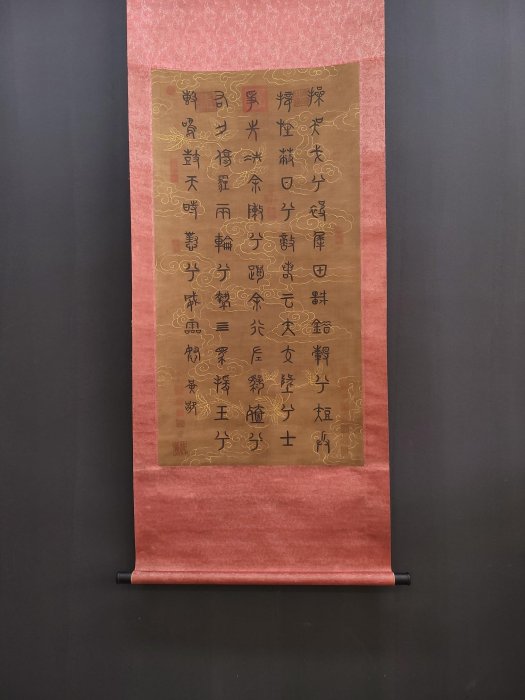 操吳戈兮被犀甲車錯轂兮短兵
接旌蔽日兮敵若云矢交墜兮士
爭先凌余陣兮躐余行左驂殪兮
右刃傷霾兩輪兮縶四馬援玉兮
擊鳴鼓天時懟兮威靈怒
黃